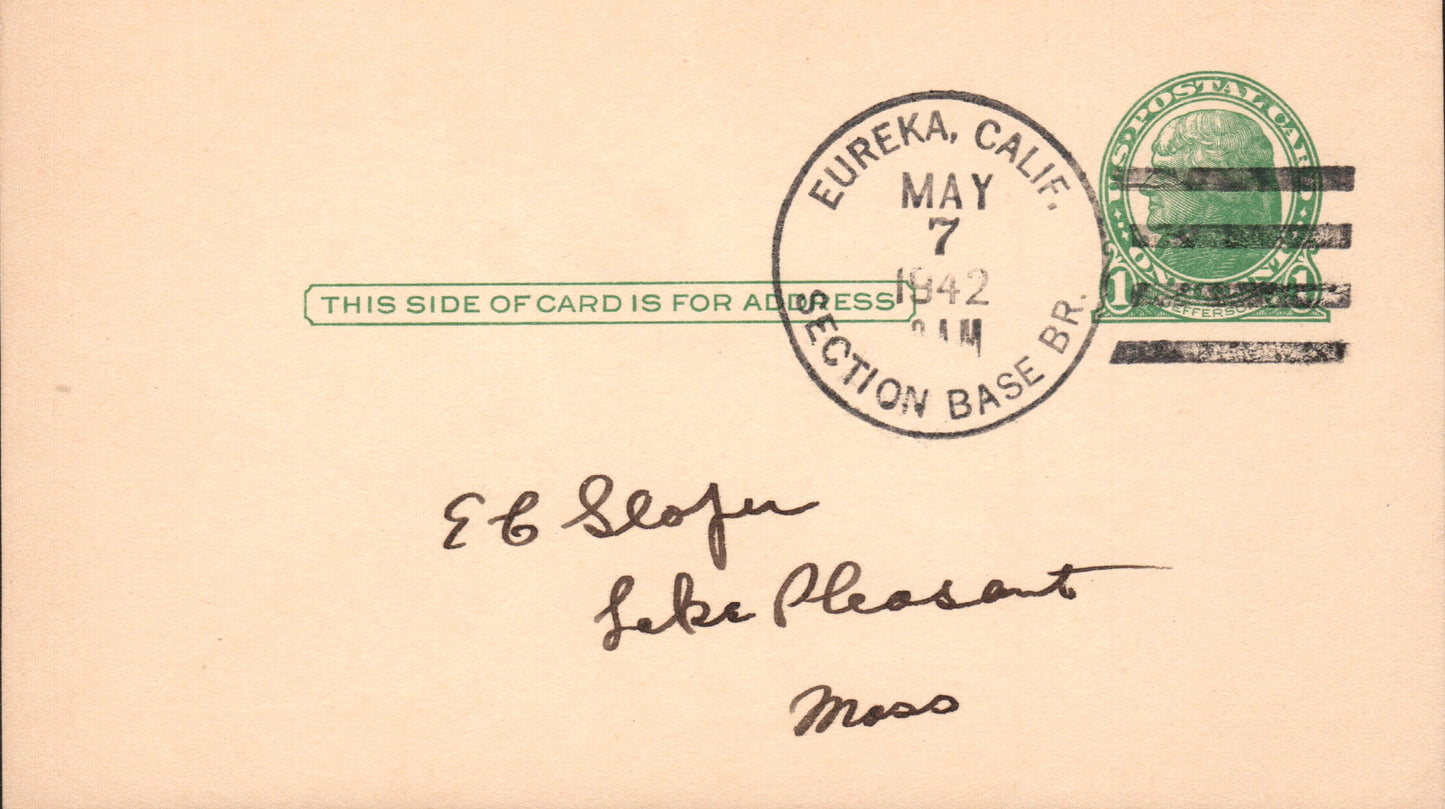 U.S. POSTAL CARD
EUREKA, CALIF.
MAY
7
1942
AM
SECTION BASE BR.
1 ONE CENT 1
JEFFERSON
THIS SIDE OF CARD IS FOR ADDRESS
E C
Lake Pleasant
Mass